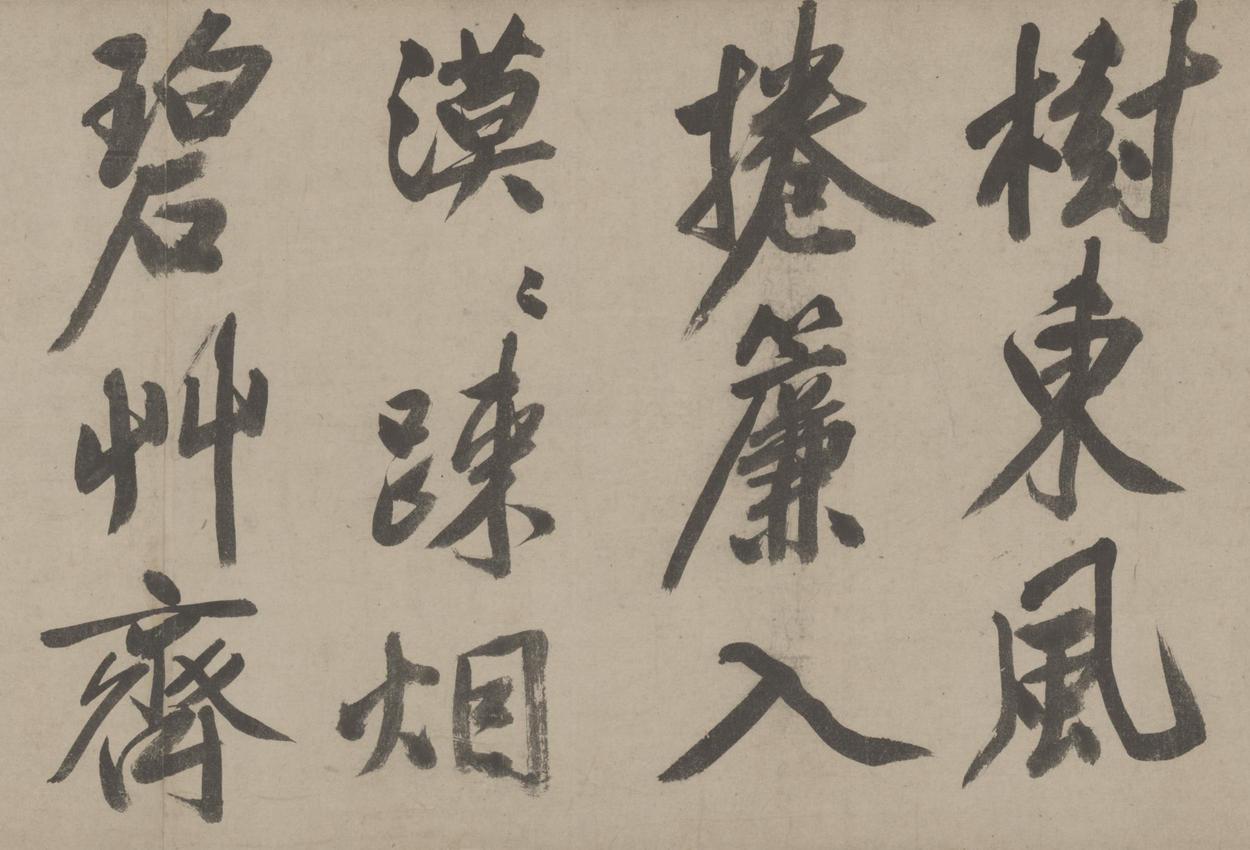 樹東風
捲簾入
漠〻踈烟
碧艸齊